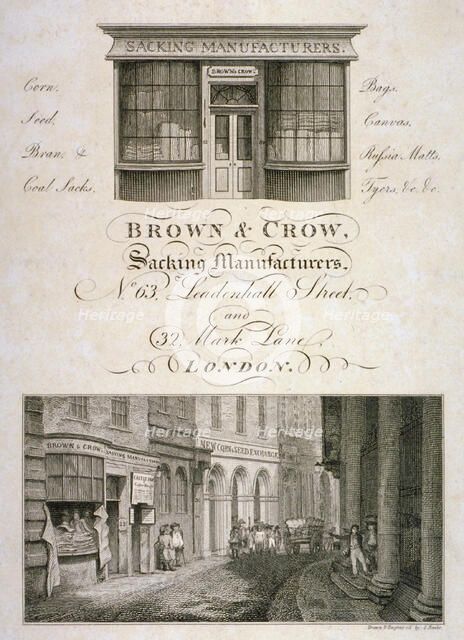 SACKING MANUFACTURERS.
BROWN & CROW.
Corn.
Seed.
Bran. &
Coal Sacks.
Bags.
Canvas.
Russia Matts.
Tyers, &c. &c.
BROWN & CROW,
Sacking Manufacturers,
No. 63, Leadenhall Street,
and
32, Mark Lane,
LONDON.
BROWN & CROW, SACKING MANUFACTURERS
NEW CORN & SEED EXCHANGE
Heritage
Heritage
Heritage
Heritage
Heritage
Heritage